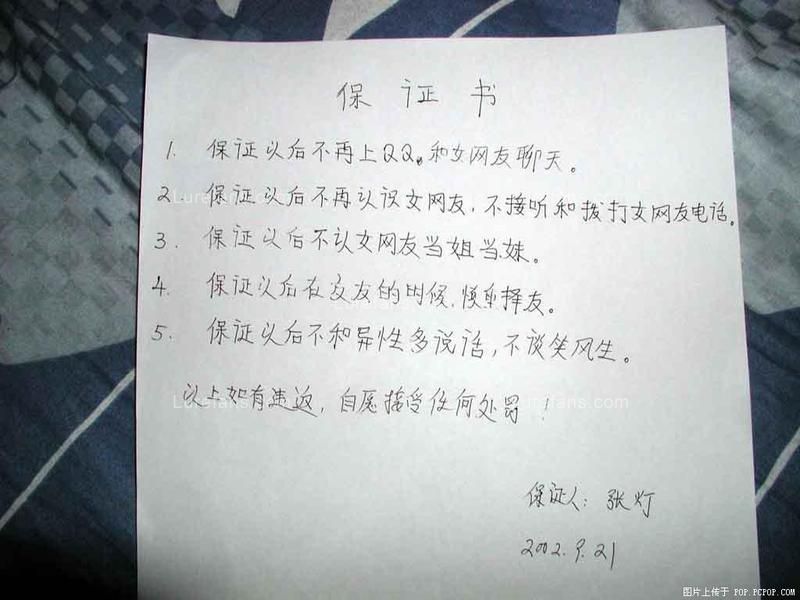 保证书
1. 保证以后不再上QQ,和女网友聊天。
2. 保证以后不再认识女网友,不接听和拨打女网友电话。
3. 保证以后不认女网友当姐当妹。
4. 保证以后在交友的时候,慎重择友。
5. 保证以后不和异性多说话,不谈笑风生。
以上如有违返,自愿接受任何处罚!
保证人:张灯
2002.9.21
Lurefans.com
Lurefans.com
图片上传于 POP.PCPOP.COM